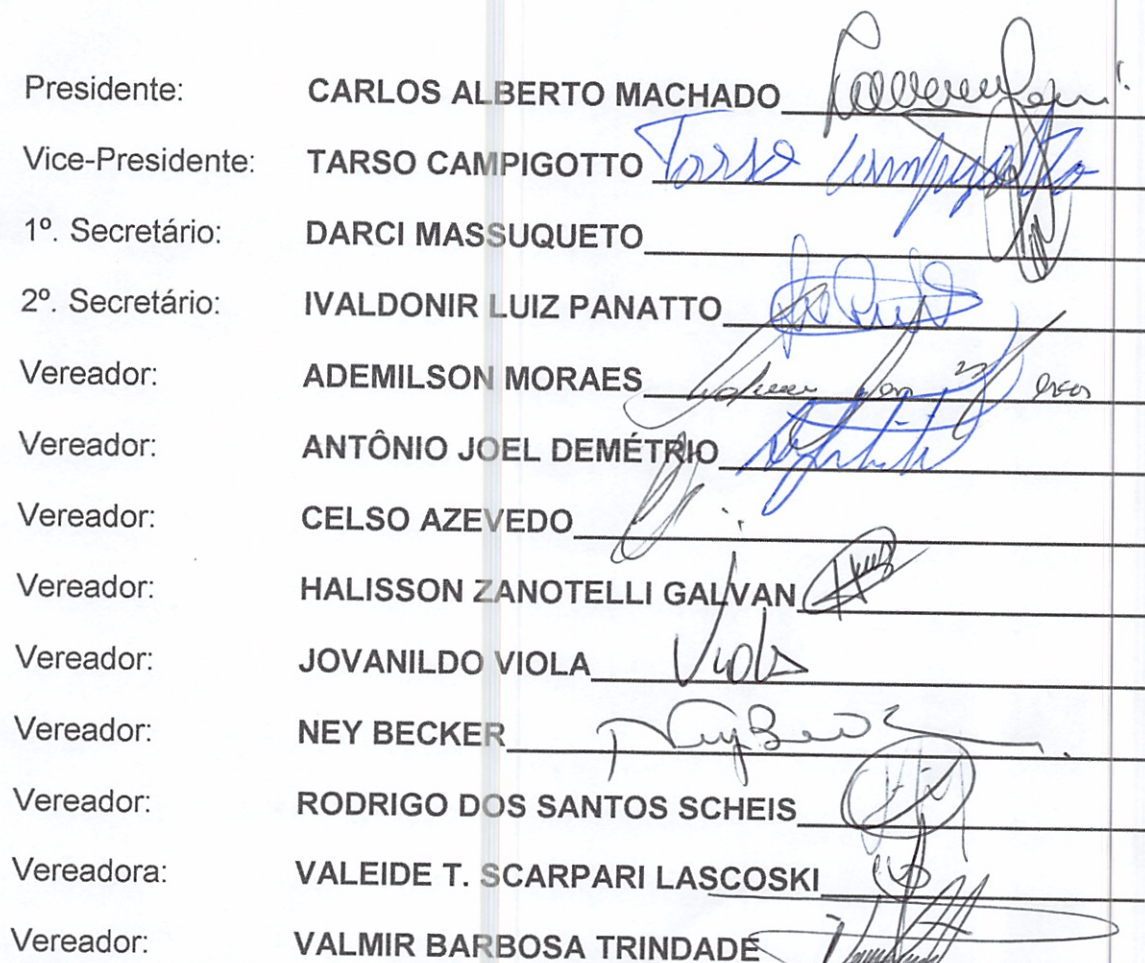 Presidente: CARLOS ALBERTO MACHADO
Vice-Presidente: TARSO CAMPIGOTTO Tarso Campigotto
1º. Secretário: DARCI MASSUQUETO
2º. Secretário: IVALDONIR LUIZ PANATTO
Vereador: ADEMILSON MORAES
Vereador: ANTÔNIO JOEL DEMÉTRIO
Vereador: CELSO AZEVEDO
Vereador: HALISSON ZANOTELLI GALVAN
Vereador: JOVANILDO VIOLA Viola
Vereador: NEY BECKER Ney Becker
Vereador: RODRIGO DOS SANTOS SCHEIS
Vereadora: VALEIDE T. SCARPARI LASCOSKI
Vereador: VALMIR BARBOSA TRINDADE